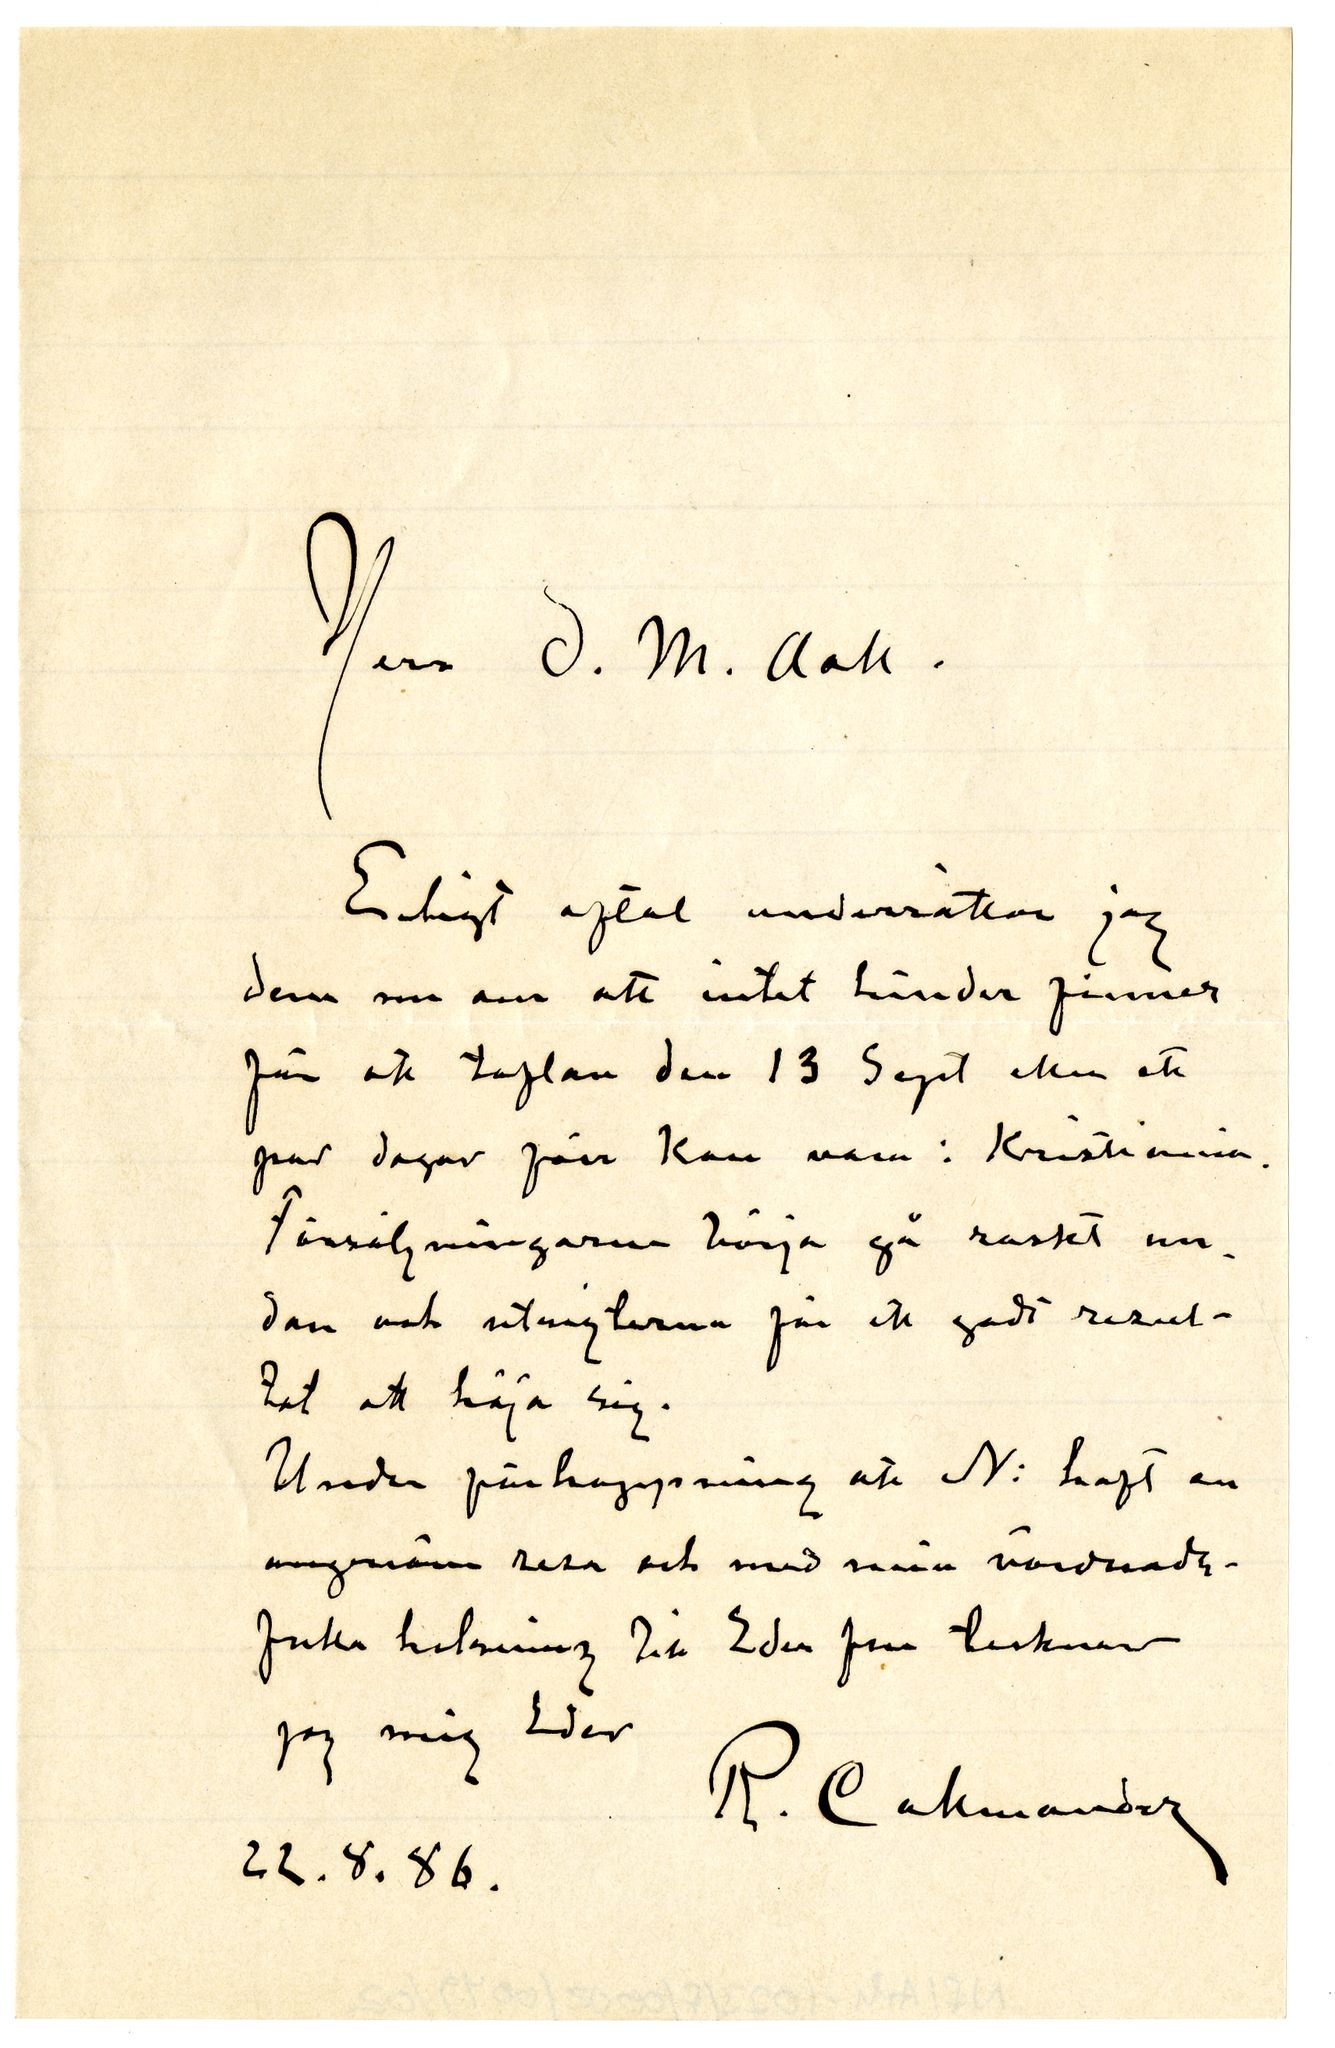 Herr D. M. Aall.
Enligt aftal underrättar jag
dem nu om att intet hinder finnes
för att taflan den 13 Sept eller ett
par dagar förr kan vara i Kristiania.
Försäljningarne börja gå raskt un-
dan och utsigterna för ett godt resul-
tat att höja sig.
Under förhoppning att N: haft en
angenäm resa och med min vördnads-
fulla helsning till Eder fru tecknar
jag mig Eder
R. Callmander
22.8.86.